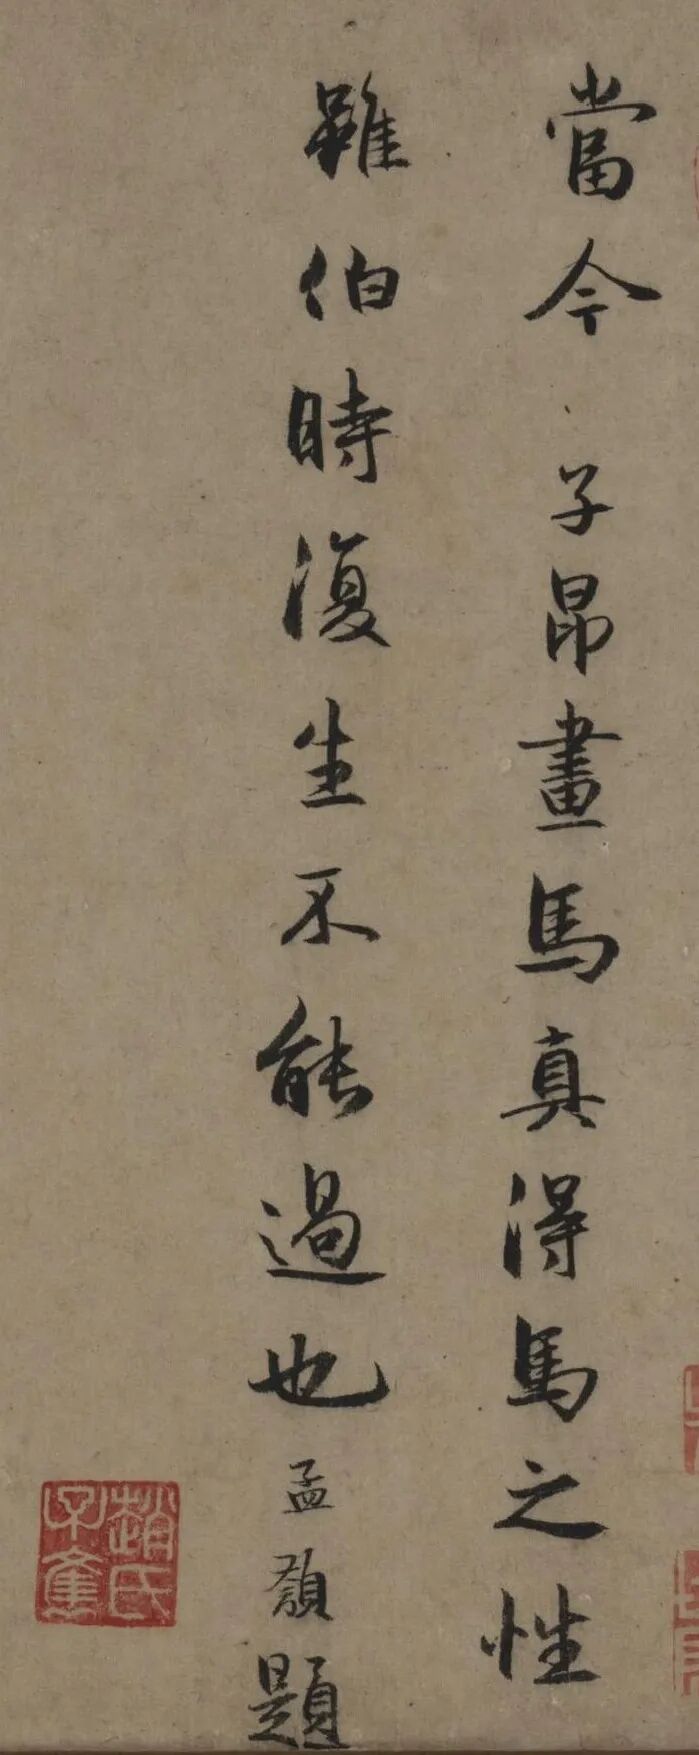 當今子昂畫馬真得馬之性
雖伯時復生不能過也孟頖題
趙氏